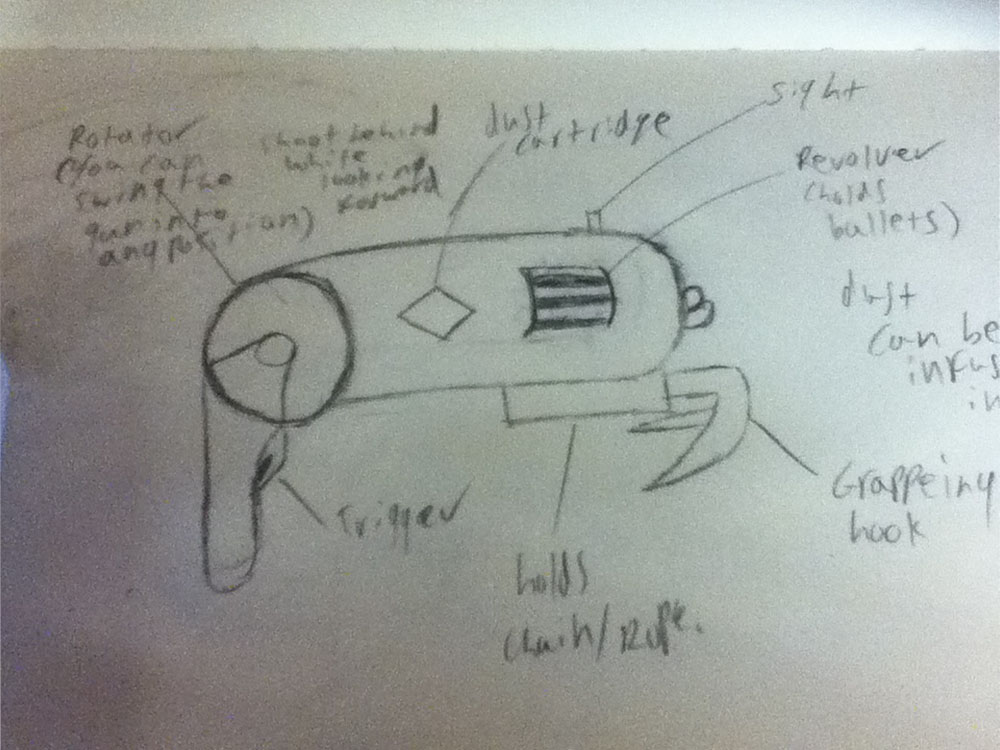 Rotator
(You can
swing the
gun into
any position)
shoot behind
while
looking
forward
dust
cartridge
sight
Revolver
(holds
bullets)
dust
can be
infus
in
Trigger
holds
chain/Rope.
Grappeing
hook